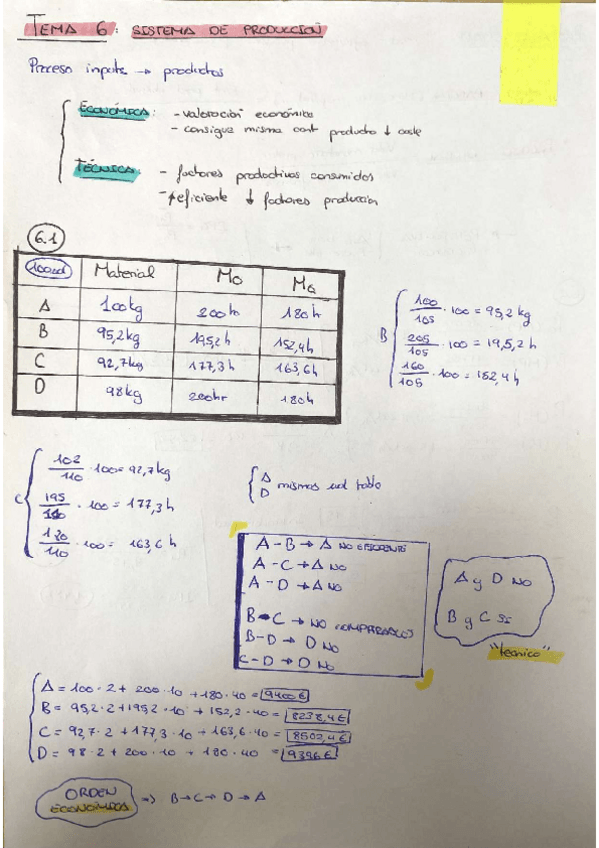 TEMA 6: SISTEMA DE PRODUCCION
Proceso inputs → productos
ECONÓMICA: - valoración económica
- consigue misma cant producto ↓ coste
TÉCNICA: - factores productivos consumidos
eficiente ↓ factores producción
6.1
100ud Material MO MQ
A 100kg 200h 180h
B 95,2kg 195,2h 152,4h
C 92,7kg 177,3h 163,6h
D 98kg 200hr 180h
B 100/105 · 100 = 95,2 kg
205/105 · 100 = 19,5,2 h
160/105 · 100 = 152,4 h
C 102/110 · 100 = 92,7 kg
195/110 · 100 = 177,3 h
/110 · 100 = 163,6 h
A
D mismas ud tabla
A - B → A NO EFICIENTE
A - C → A NO
A - D → A NO
B - C → NO COMPARABLES
B - D → D NO
C - D → D NO
A y D NO
B y C SI
"técnico"
A = 100 · 2 + 200 · 10 + 180 · 40 = 9400€
B = 95,2 · 2 + 195,2 · 10 + 152,2 · 40 = 8238,4€
C = 92,7 · 2 + 177,3 · 10 + 163,6 · 40 = 8502,4€
D = 98 · 2 + 200 · 10 + 180 · 40 = 9396€
ORDEN ECONÓMICO => B → C → D → A